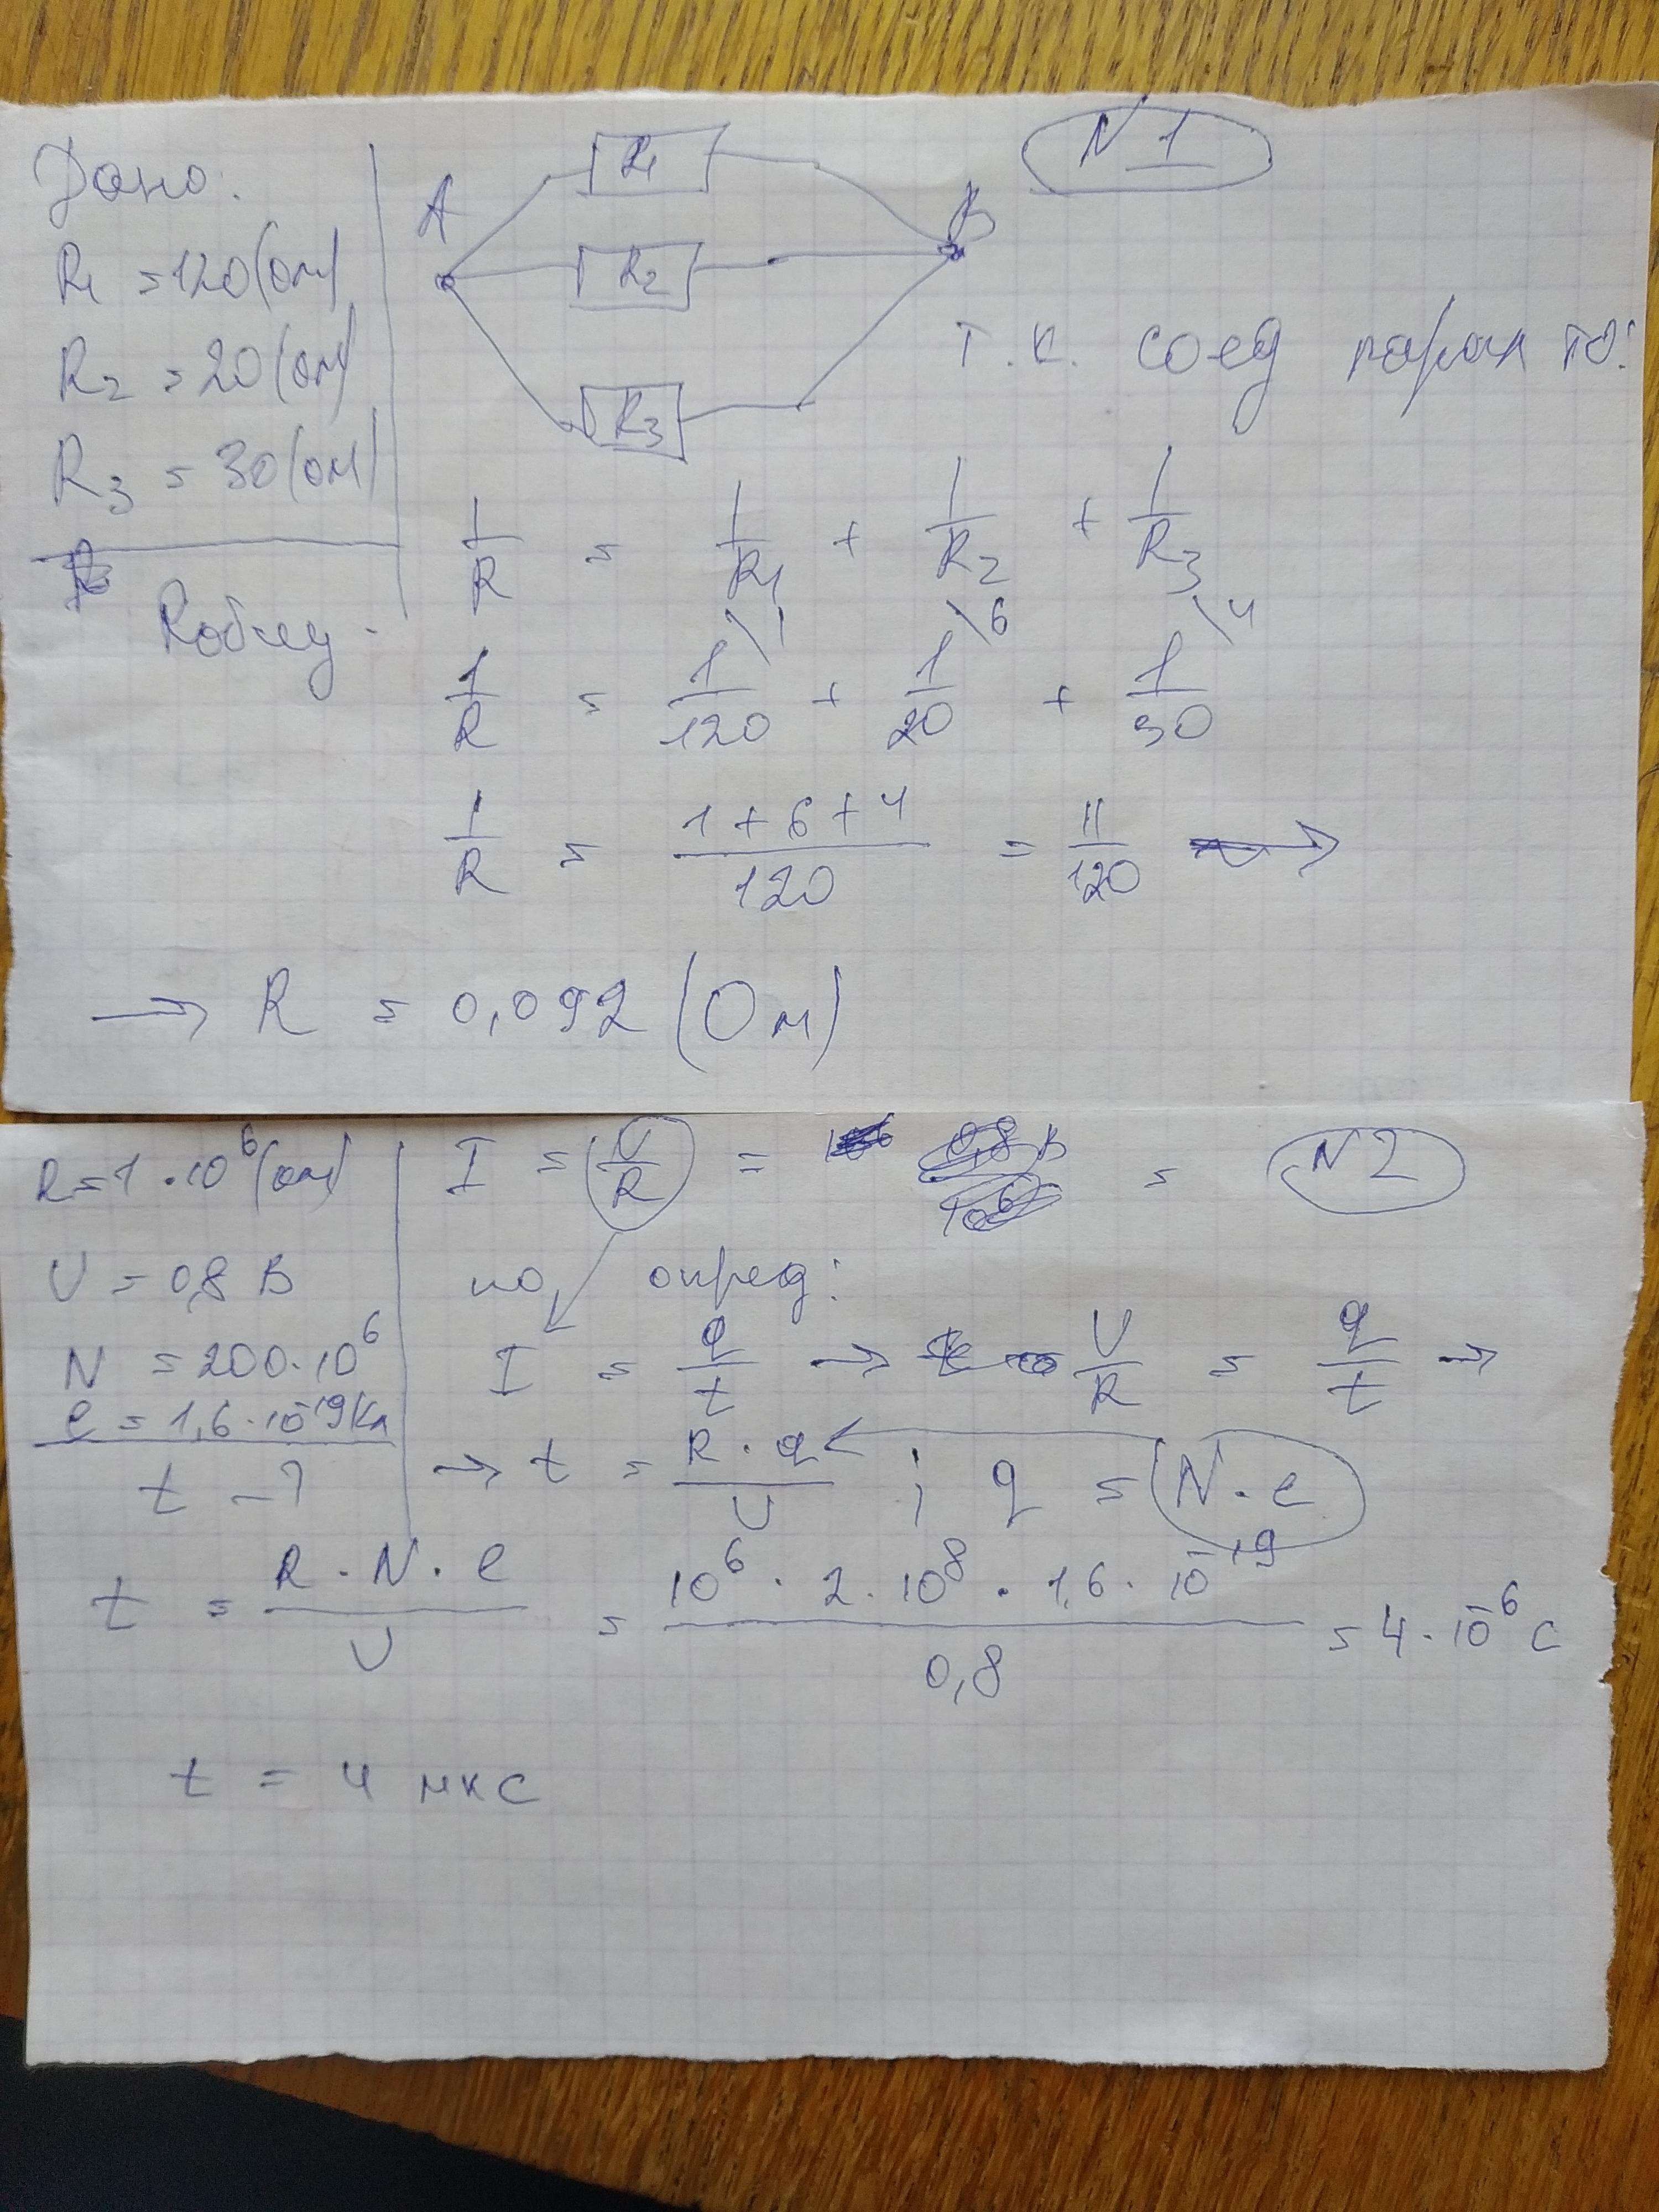 N 1
Дано:
R1 = 120 (Ом)
R2 = 20 (Ом)
R3 = 30 (Ом)
Rобщ -
A R1 R2 R3 B
т.к. соед парал то:
1/R = 1/R1 + 1/R2 + 1/R3
1/R = 1/120 \1 + 1/20 \6 + 1/30 \4
1/R = (1 + 6 + 4)/120 = 11/120 →
→ R = 0,092 (Ом)
N 2
R = 1 · 10^6 (Ом)
U = 0,8 В
N = 200 · 10^6
e = 1,6 · 10^-19 Кл
t - ?
I = U/R = =
по опред:
I = q/t → U/R = q/t →
→ t = R · q / U ; q = N · e
t = R · N · e / U = 10^6 · 2 · 10^8 · 1,6 · 10^-19 / 0,8 = 4 · 10^-6 с
t = 4 мкс